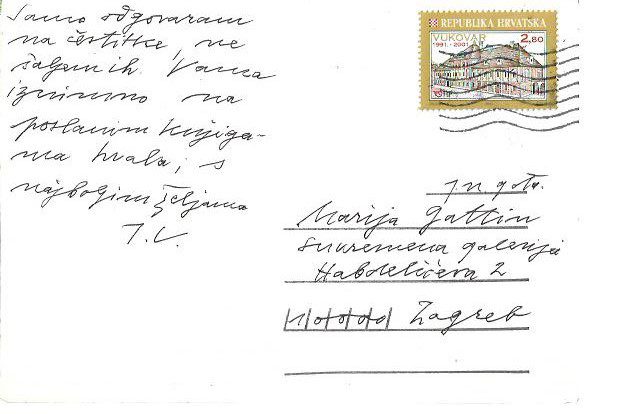 Samo odgovaram
na čestitke, ne
šaljem ih. Vama
iznimno na
poslanim knjiga-
ma hvala, s
najboljim željama
I. V.
REPUBLIKA HRVATSKA
VUKOVAR
1991.-2001.
2,80
Marija Gattin
Suvremena galerija
Habdelićeva 2
10000 Zagreb